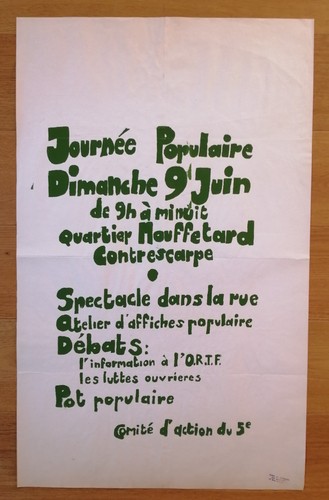 Journée Populaire
Dimanche 9 Juin
de 9h à minuit
Quartier Mouffetard
Contrescarpe
Spectacle dans la rue
Atelier d'affiches populaire
Débats:
l'information à l'O.R.T.F.
les luttes ouvrieres
Pot populaire
Comité d'action du 5e